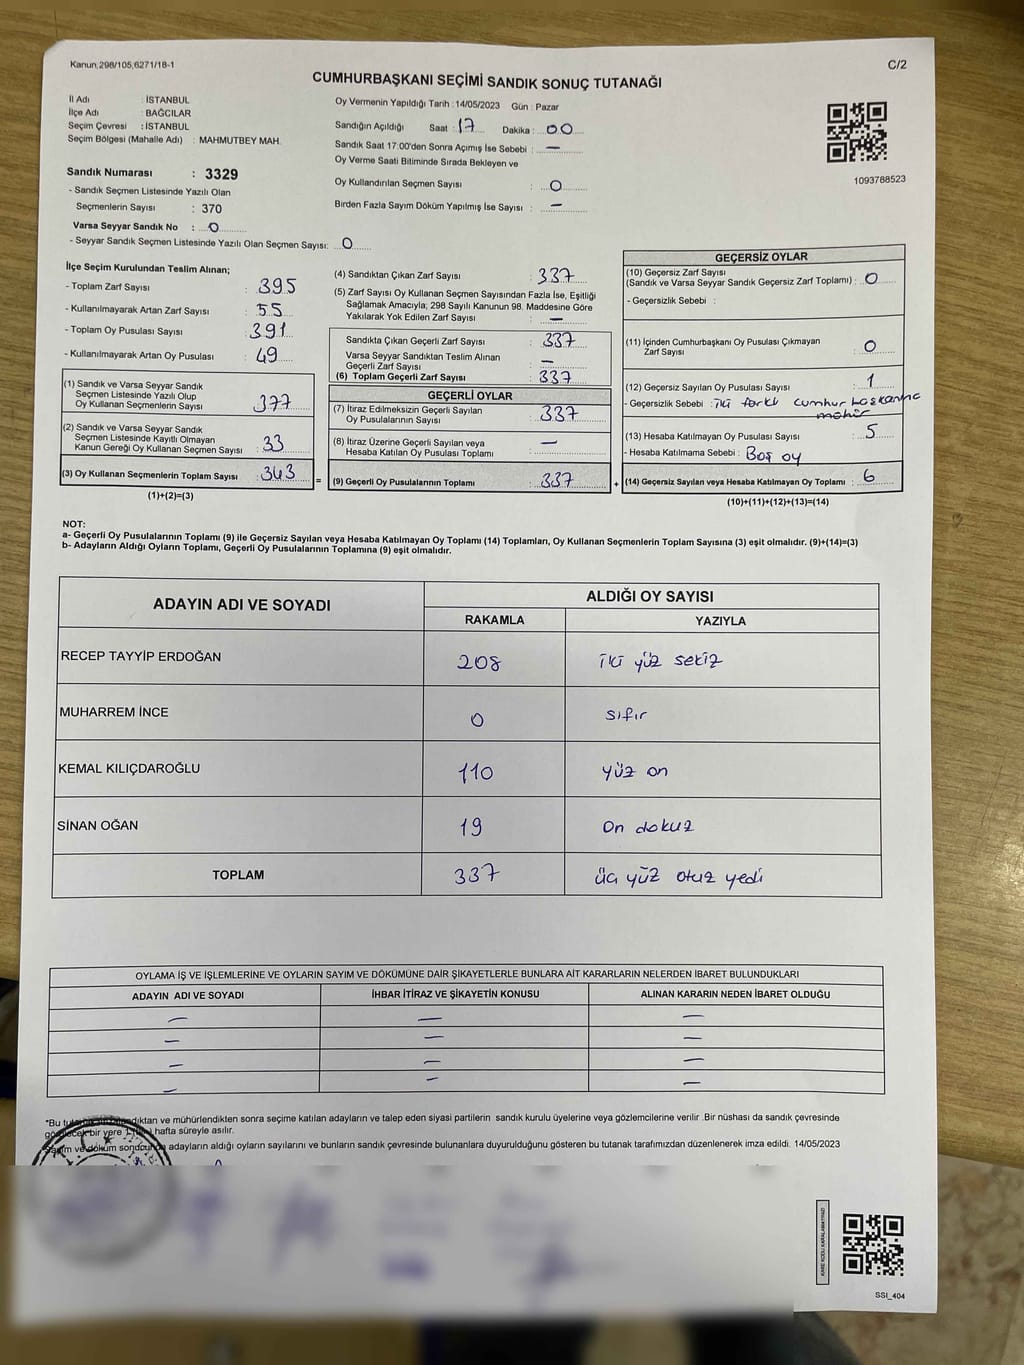 Kanun,298/105,6271/18-1
C/2
CUMHURBAŞKANI SEÇİMİ SANDIK SONUÇ TUTANAĞI
İl Adı : İSTANBUL
İlçe Adı : BAĞCILAR
Seçim Çevresi : İSTANBUL
Seçim Bölgesi (Mahalle Adı) : MAHMUTBEY MAH.
Sandık Numarası : 3329
- Sandık Seçmen Listesinde Yazılı Olan
Seçmenlerin Sayısı : 370
Varsa Seyyar Sandık No : 0
- Seyyar Sandık Seçmen Listesinde Yazılı Olan Seçmen Sayısı: 0
Oy Vermenin Yapıldığı Tarih :14/05/2023 Gün : Pazar
Sandığın Açıldığı Saat : 17 Dakika : 00
Sandık Saat 17:00'den Sonra Açımış İse Sebebi : —
Oy Verme Saati Bitiminde Sırada Bekleyen ve
Oy Kullandırılan Seçmen Sayısı : 0
Birden Fazla Sayım Döküm Yapılmış İse Sayısı : —
1093788523
İlçe Seçim Kurulundan Teslim Alınan;
- Toplam Zarf Sayısı : 395
- Kullanılmayarak Artan Zarf Sayısı : 55
- Toplam Oy Pusulası Sayısı : 391
- Kullanılmayarak Artan Oy Pusulası : 49
(1) Sandık ve Varsa Seyyar Sandık
Seçmen Listesinde Yazılı Olup
Oy Kullanan Seçmenlerin Sayısı : 377
(2) Sandık ve Varsa Seyyar Sandık
Seçmen Listesinde Kayıtlı Olmayan
Kanun Gereği Oy Kullanan Seçmen Sayısı : 33
(3) Oy Kullanan Seçmenlerin Toplam Sayısı : 343
(1)+(2)=(3)
(4) Sandıktan Çıkan Zarf Sayısı : 337
(5) Zarf Sayısı Oy Kullanan Seçmen Sayısından Fazla İse, Eşitliği
Sağlamak Amacıyla; 298 Sayılı Kanunun 98. Maddesine Göre
Yakılarak Yok Edilen Zarf Sayısı : —
Sandıkta Çıkan Geçerli Zarf Sayısı : 337
Varsa Seyyar Sandıktan Teslim Alınan
Geçerli Zarf Sayısı : —
(6) Toplam Geçerli Zarf Sayısı : 337
GEÇERLİ OYLAR
(7) İtiraz Edilmeksizin Geçerli Sayılan
Oy Pusulasının Sayısı : 337
(8) İtiraz Üzerine Geçerli Sayılan veya
Hesaba Katılan Oy Pusulası Toplamı : —
= (9) Geçerli Oy Pusulalarının Toplamı : 337 +
GEÇERSİZ OYLAR
(10) Geçersiz Zarf Sayısı
(Sandık ve Varsa Seyyar Sandık Geçersiz Zarf Toplamı) : 0
- Geçersizlik Sebebi :
(11) İçinden Cumhurbaşkanı Oy Pusulası Çıkmayan
Zarf Sayısı : 0
(12) Geçersiz Sayılan Oy Pusulası Sayısı : 1
- Geçersizlik Sebebi : iki farklı cumhurbaşkanına
mühür
(13) Hesaba Katılmayan Oy Pusulası Sayısı : 5
- Hesaba Katılmama Sebebi : Boş oy
(14) Geçersiz Sayılan veya Hesaba Katılmayan Oy Toplamı : 6
(10)+(11)+(12)+(13)=(14)
NOT:
a- Geçerli Oy Pusulalarının Toplamı (9) ile Geçersiz Sayılan veya Hesaba Katılmayan Oy Toplamı (14) Toplamları, Oy Kullanan Seçmenlerin Toplam Sayısına (3) eşit olmalıdır. (9)+(14)=(3)
b- Adayların Aldığı Oyların Toplamı, Geçerli Oy Pusulalarının Toplamına (9) eşit olmalıdır.
ADAYIN ADI VE SOYADI ALDIĞI OY SAYISI
RAKAMLA YAZIYLA
RECEP TAYYİP ERDOĞAN 208 iki yüz sekiz
MUHARREM İNCE 0 sıfır
KEMAL KILIÇDAROĞLU 110 yüz on
SİNAN OĞAN 19 On dokuz
TOPLAM 337 üç yüz otuz yedi
OYLAMA İŞ VE İŞLEMLERİNE VE OYLARIN SAYIM VE DÖKÜMÜNE DAİR ŞİKAYETLERLE BUNLARA AİT KARARLARIN NELERDEN İBARET BULUNDUKLARI
ADAYIN ADI VE SOYADI İHBAR İTİRAZ VE ŞİKAYETİN KONUSU ALINAN KARARIN NEDEN İBARET OLDUĞU
— — —
— — —
— — —
— — —
*Bu ve mühürlendikten sonra seçime katılan adayların ve talep eden siyasi partilerin sandık kurulu üyelerine veya gözlemcilerine verilir .Bir nüshası da sandık çevresinde
bir yere hafta süreyle asılır.
adayların aldığı oyların sayılarını ve bunların sandık çevresinde bulunanlara duyurulduğunu gösteren bu tutanak tarafımızdan düzenlenerek imza edildi. 14/05/2023
SSI_404